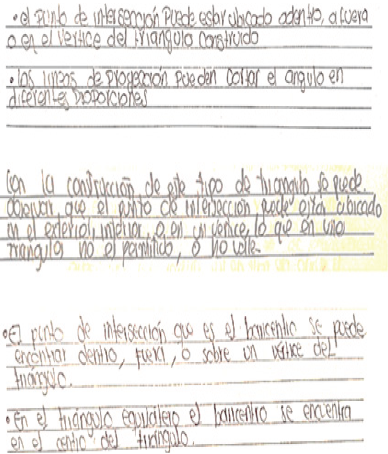 •el punto de intersección puede estar ubicado adentro, afuera
o en el vertice del triangulo construido
•las lineas de proyección pueden cortar el angulo en
diferentes proporciones
Con la construcción de este tipo de triangulo se puede
observar, que el punto de intersección puede estar ubicado
en el exterior, interior, o en un vertice, lo que en una
triangulo no es permitido, o no vale.
•El punto de intersección que es el baricentro se puede
encontrar dentro, fuera, o sobre un vértice del
triángulo.
•En el triángulo equilátero el baricentro se encuentra
en el centro del triángulo.